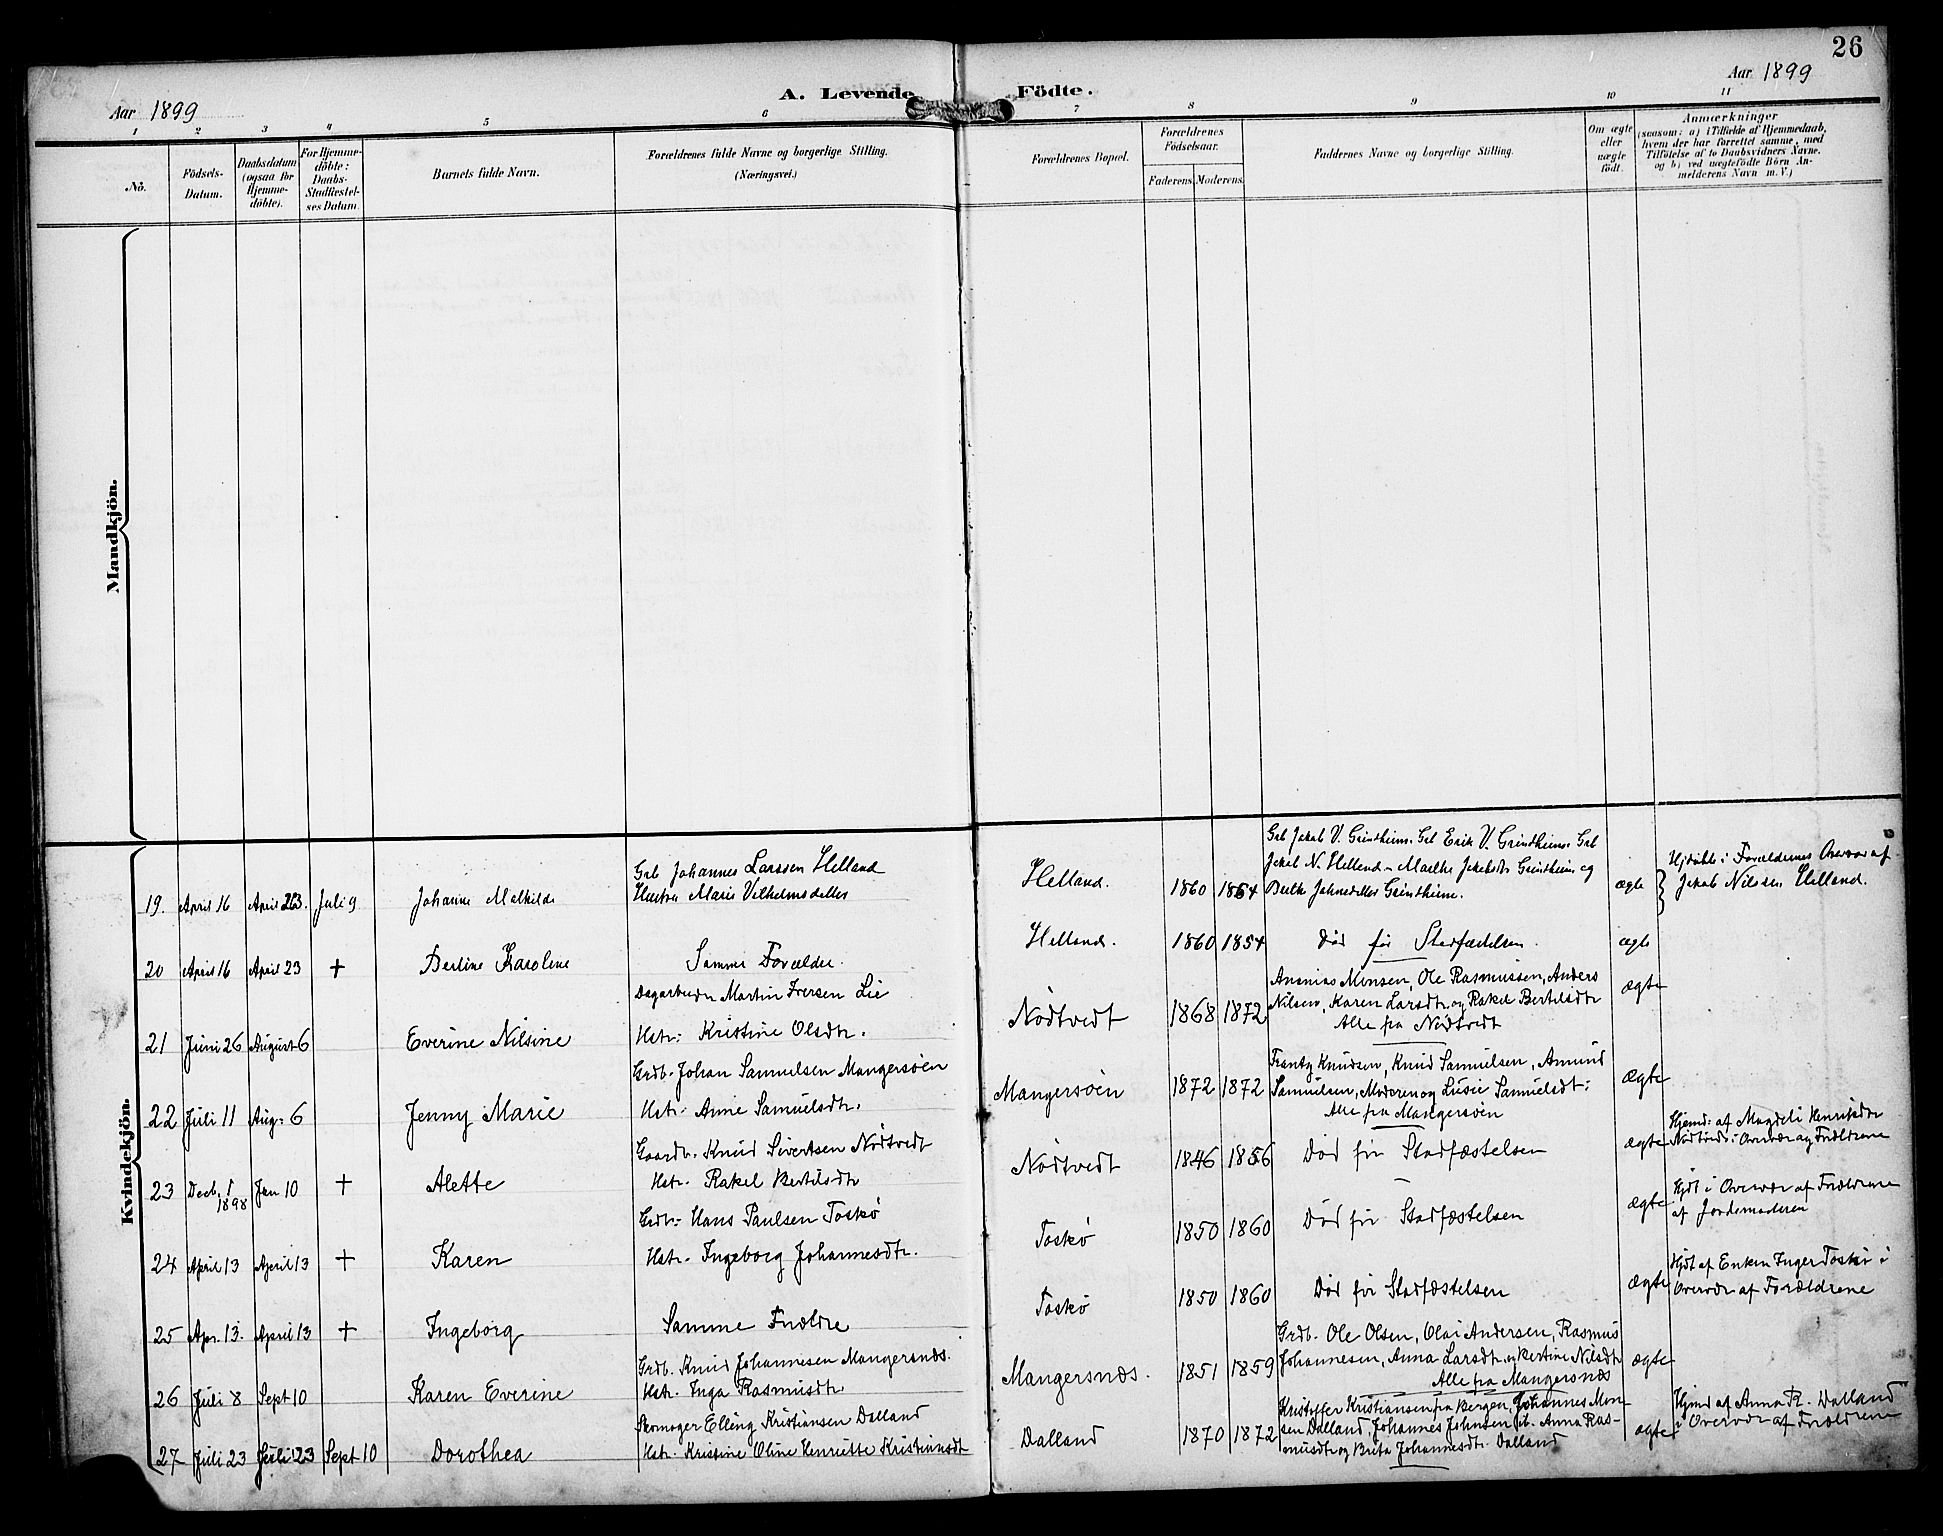 26
Aar 1899
A. Levende Födte.
Aar 1899
1 2 3 4 5 6 7 8 9 10 11
No.
Födsels-Datum.
Daabsdatum (ogsaa för Hjemme-döbte).
For Hjemme-döbte: Daabs-Stadfæstel-ses Datum.
Barnets fulde Navn.
Forældrenes fulde Navne og borgerlige Stilling.
(Næringsvei.)
Forældrenes Bopæl.
Forældrenes Födselsaar.
Faderens. Moderens.
Faddernes Navne og borgerlige Stilling.
Om ægte eller uægte födt.
Anmærkninger
(saasom: a) i Tilfælde af Hjemmedaab,
hvem der har forrettet samme, med
Tilföielse af to Daabsvidners Navne.
og b) ved uægtefödte Börn An-
melderens Navn m. V.)
Mandkjön.
Kvindekjön.
19. April 16 April 23. Juli 9 Johanne Mathilde
Grb Johannes Larssen Helland
Hustru Marie Vilhelmsdatter
Helland. 1860 1854
Grb Jakob V. Grindheim. Grb Erik V. Grindheim. Grb
Jakob N. Helland. Marthe Jakobsdtr Grindheim og
Grindheim.
ægte
Hjdöbt i Forældrenes Overvær af
Jakob Nilssen Helland.
20 April 16 April 23 + Bertine Karoline
Samme Forælder.
Helland. 1860 1854 Död för Stadfæstelsen. ægte
21 Juni 26 August 6 Everine Nilsine
Dagarbeider Martin Iversen Lie
Hstr: Kristine Olsdtr.
Nödtvedt 1868 1872
Ananias Monsen, Ole Rasmussen, Anders
Nilsen, Karen Larsdtr og Rakel Bertilsdtr
Alle fra Nödtvedt
ægte
22 Juli 11 Aug: 6 Jenny Marie
Grdb. Johan Samuelsen Mangersöen
Hstr. Anne Samuelsdtr.
Mangersöen 1872 1872
Frantz Knudsen, Knud Samuelsen, Amund
Samuelsen, Moderen og Lusie Samuelsdt:
Alle fra Mangersöen
ægte
23 Decb. 1 1898 Jan 10 + Alette
Gaardb. Knud Sivertsen Nödtvedt
Hstr. Rakel Bertilsdtr
Nödtvedt 1846 1856 Död för Stadfæstelsen ægte
Hjemd: af Magdeli Henriksdtr
Nödtvedt i Overvær af Forældrene
24 April 13 April 13 + Karen
Grdb: Hans Paulsen Toskö
Hstr. Ingeborg Johannesdtr.
Toskö 1850 1860 Död för Stadfæstelsen ægte
Hjdt i Overvær af Forældrene
af Jordemoderen
25 Apr. 13. April 13 + Ingeborg
Samme Forældre
Toskö 1850 1860 Död för Stadfæstelsen ægte
Hjdt af Enken Inger Toskö i
Overvær af Forældrene
26 Juli 8 Sept 10 Karen Everine
Grdb. Knud Johannesen Mangersnæs.
Hstr. Inga Rasmusdtr
Mangersnæs. 1851 1859
Grdb. Ole Olsen, Olai Andersen, Rasmus
Johannesen, Anna Larsdtr og Bertine Nilsdtr
Alle fra Mangersnæs
ægte
27 Juli 23 Juli 23 Sept 10 Dorothea
Skomager Elling Kristiansen Dalland
Hstr. Kristine Oline Henriette Kristiansdt
Dalland 1870 1872
Kristoffer Kristiansen fra Bergen, Johannes Mon-
sen Dalland, Johannes Johnsen ib. Anna Ras-
musdtr og Brita Johannesdt. Dalland
ægte
Hjemd af Anna R. Dalland
i Overvær af Forældrene